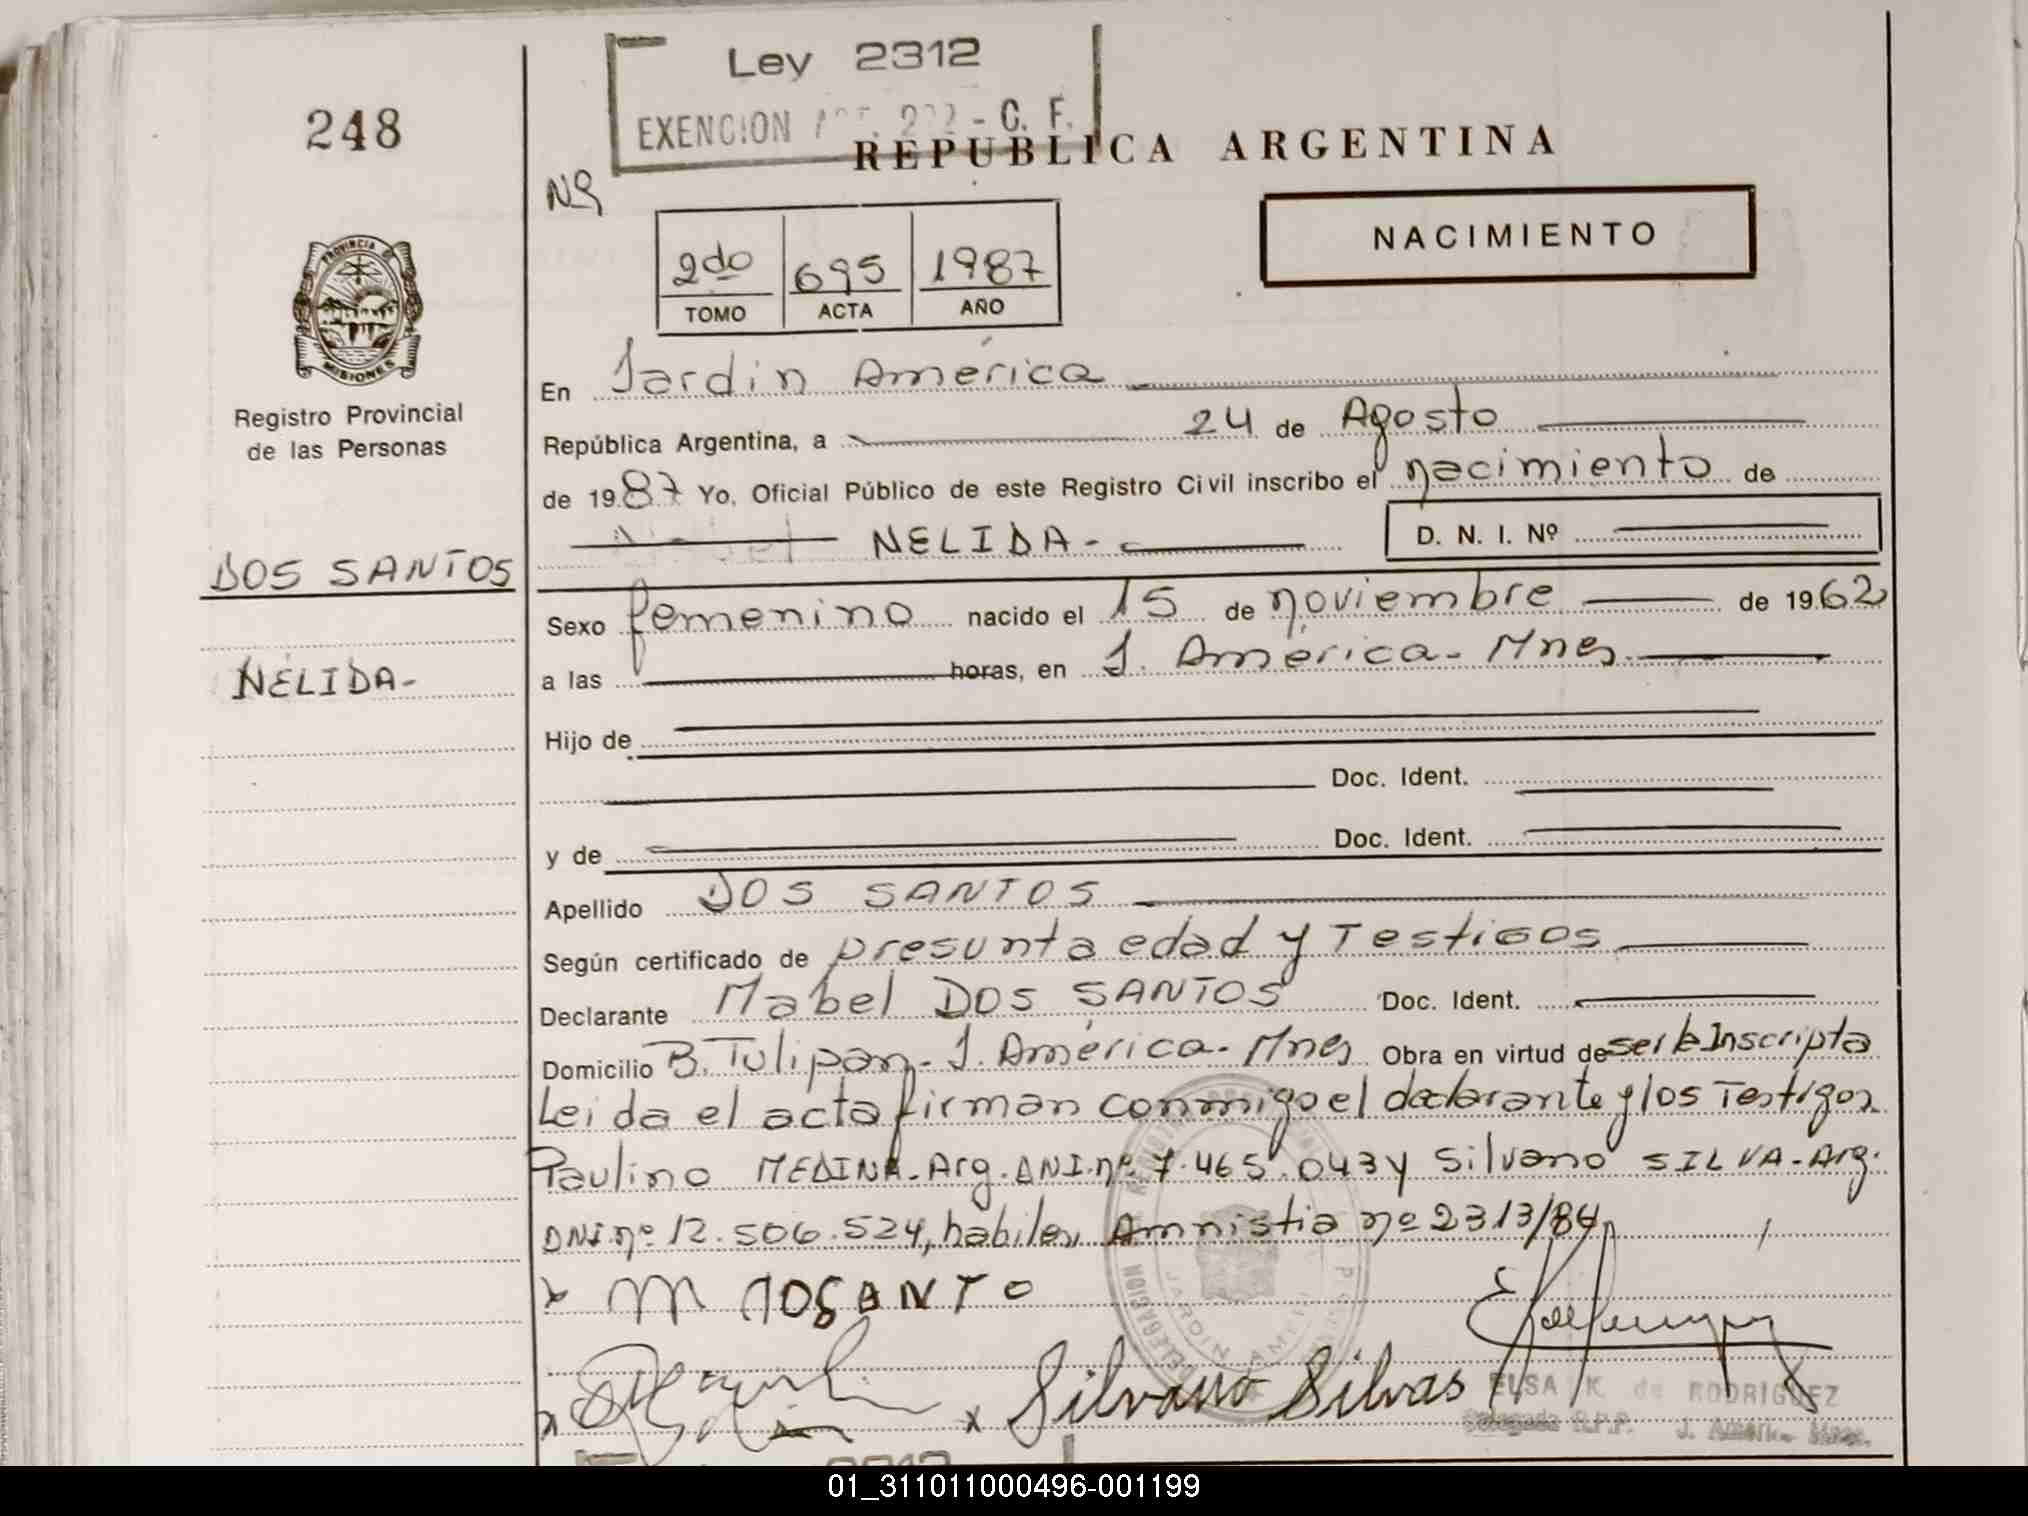 Ley 2312
EXENCION - C. F.
248
REPUBLICA ARGENTINA
Nº
NACIMIENTO
2do 695 1987
TOMO ACTA AÑO
PROVINCIA
MISIONES
Registro Provincial
de las Personas
En Jardin América
República Argentina, a 24 de Agosto
de 1987 Yo, Oficial Público de este Registro Civil inscribo el nacimiento de
NELIDA-
D. N. I. Nº
DOS SANTOS
NÉLIDA-
Sexo femenino nacido el 15 de noviembre de 1962
a las horas, en J. América- Mnes
Hijo de
Doc. Ident.
y de Doc. Ident.
Apellido DOS SANTOS
Según certificado de presunta edad y Testigos
Declarante Mabel DOS SANTOS Doc. Ident.
Domicilio B. Tulipan- J. América- Mnes Obra en virtud de ser la Inscripta
Leida el acta firman conmigo el declarante y los Testigos
Paulino MEDINA- Arg. DNI. nº 7.465.043 y Silvano SILVA- Arg.
DNI. nº 12.506.524, habiles, Amnistia nº 2313/84
x M DOSANTO
x x Silvano Silvas
ELSA K. de RODRIGUEZ
Delegada R.P.P. J. Améri. Mnes.
01_311011000496-001199